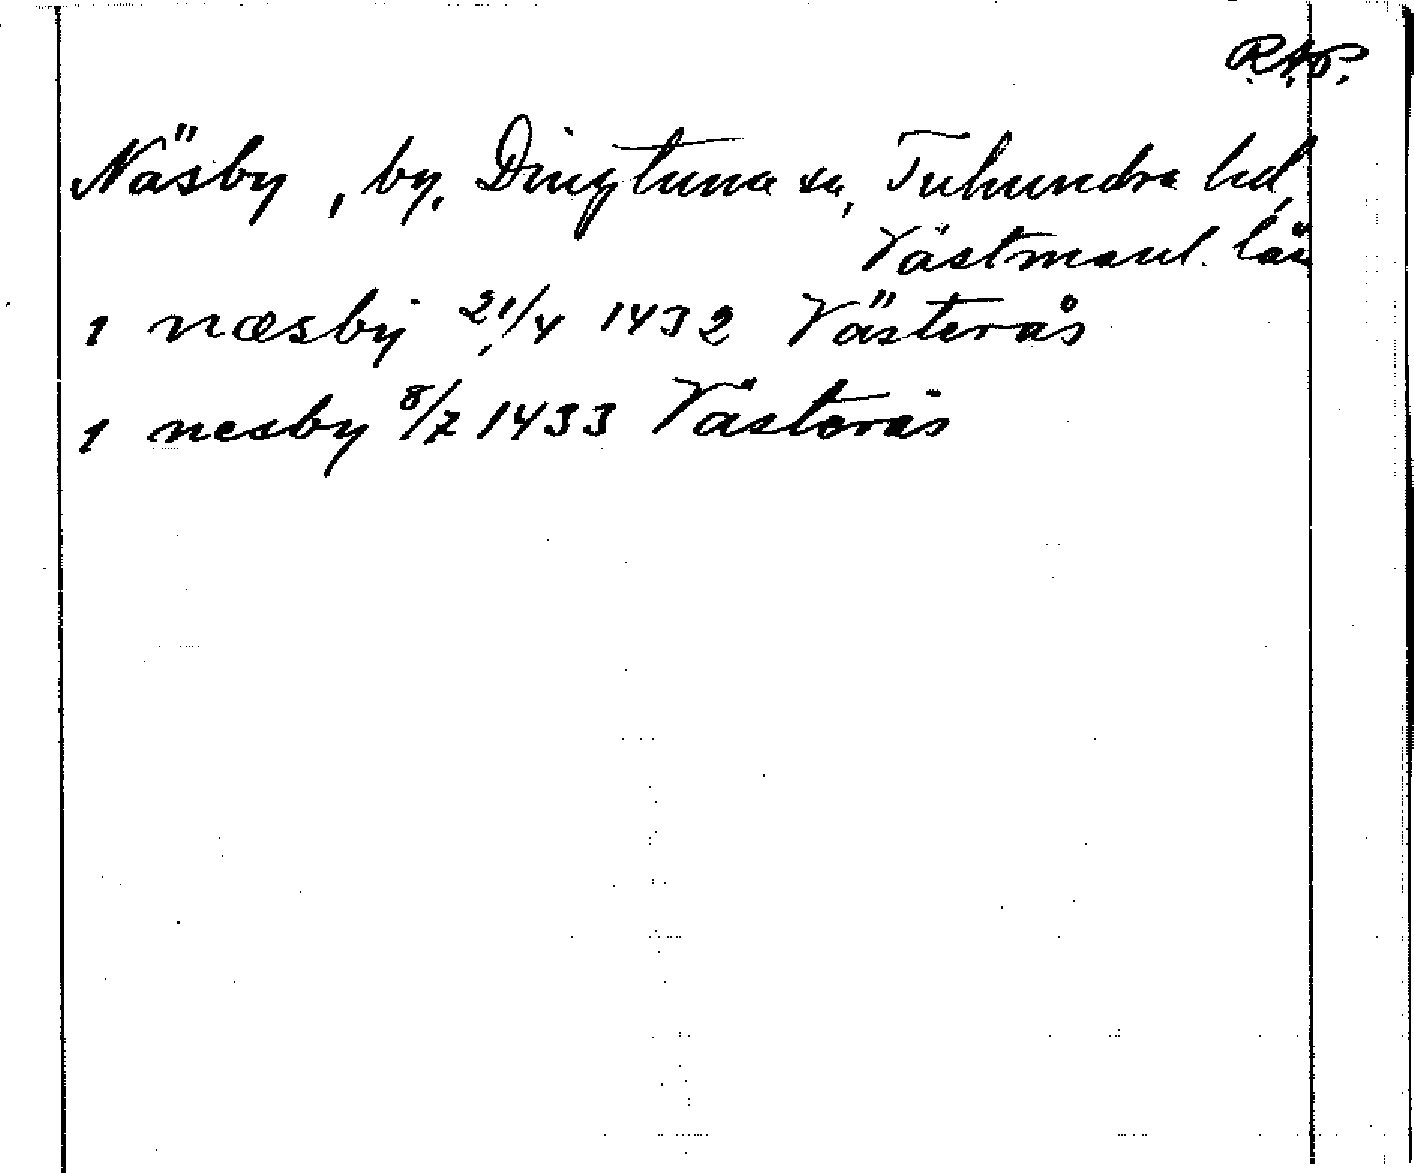 R.A.P.
Näsby, by, Dingtuna sn, Tuhundra hd,
Västmanl. län
1 næsby 21/4 1432 Västerås
1 nesby 8/7 1433 Västerås